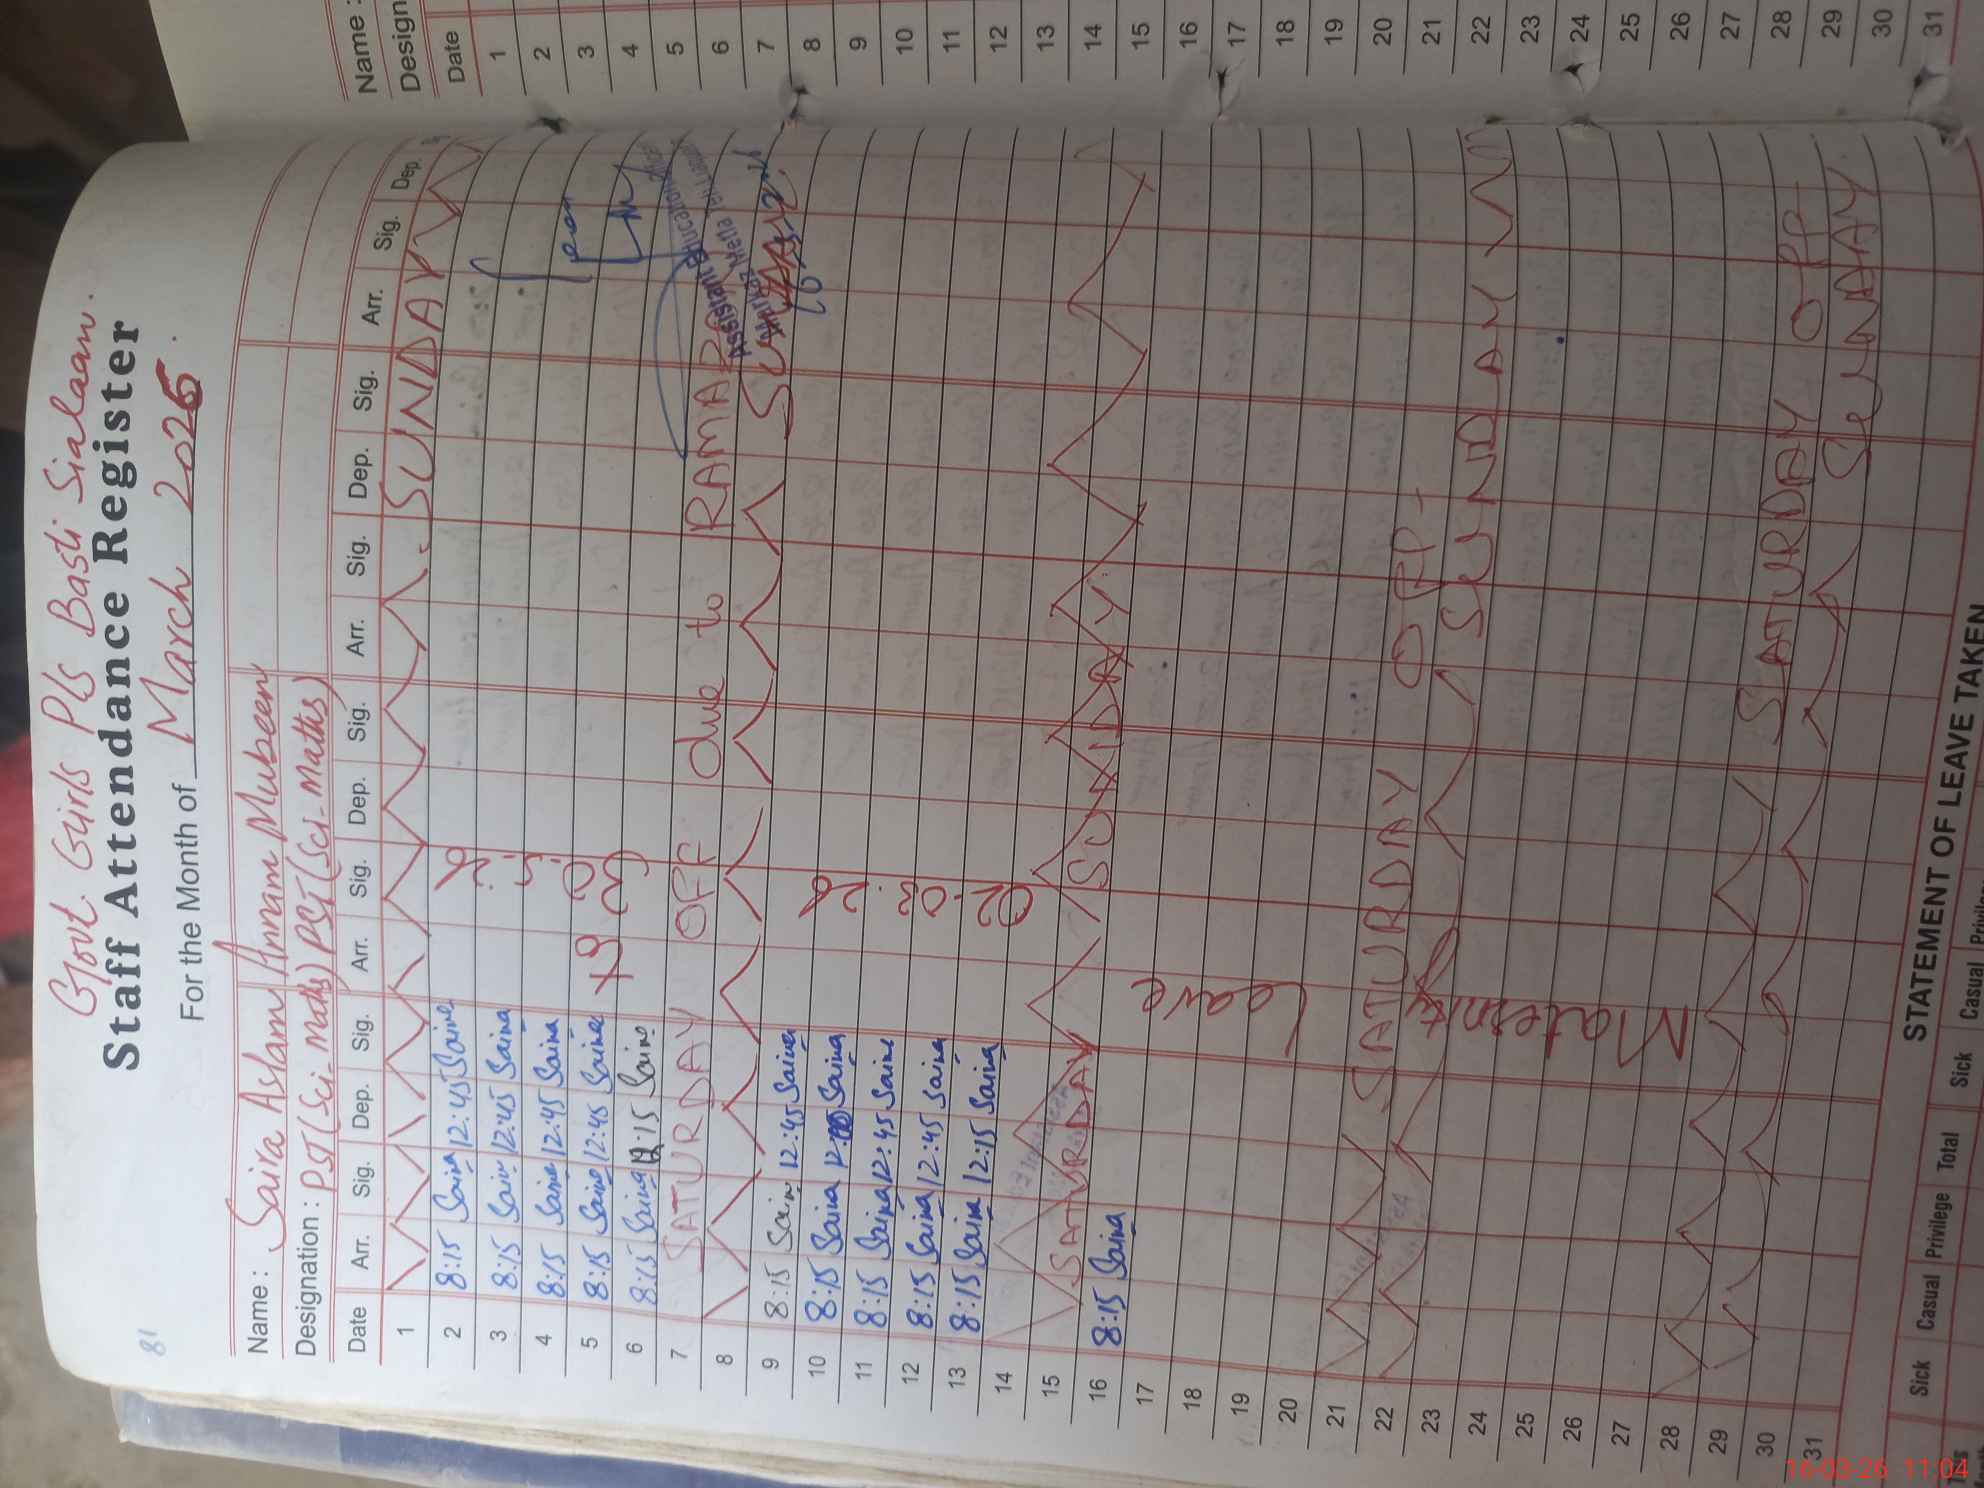 81
Govt. Girls P/s Basti Sialaan.
Staff Attendance Register
For the Month of March 2026.
Name: Saira Aslam Annam Mubeen
Designation: PST (Sci-Maths) PST (Sci-Maths)
Date Arr. Sig. Dep. Sig. Arr. Sig. Dep. Sig. Arr. Sig. Dep. Sig. Arr. Sig. Dep.
1 SUNDAY
2 8:15 Saira 12:45 Saira
3 8:15 Saira 12:45 Saira
4 8:15 Saira 12:45 Saira
5 8:15 Saira 12:45 Saira
6 8:15 Saira 12:15 Saira
7 SATURDAY OFF due to RAMAZAN
8 SUNDAY
9 8:15 Saira 12:45 Saira
10 8:15 Saira 12: Saira
11 8:15 Saira 12:45 Saira
12 8:15 Saira 12:45 Saira
13 8:15 Saira 12:15 Saira
14 SATURDAY
15 SUNDAY
16 8:15 Saira
17
18
19
20
21 SATURDAY OFF
22 SUNDAY
23
24
25
26
27
28 SATURDAY OFF
29 SUNDAY
30
31
Maternity Leave
02-03-26
to
30-5-26
Assistant Education Officer
Markaz
STATEMENT OF LEAVE TAKEN
Sick Casual Privilege Total Sick Casual
Name:
Design
Date
1
2
3
4
5
6
7
8
9
10
11
12
13
14
15
16
17
18
19
20
21
22
23
24
25
26
27
28
29
30
31
16-03-26 11:04